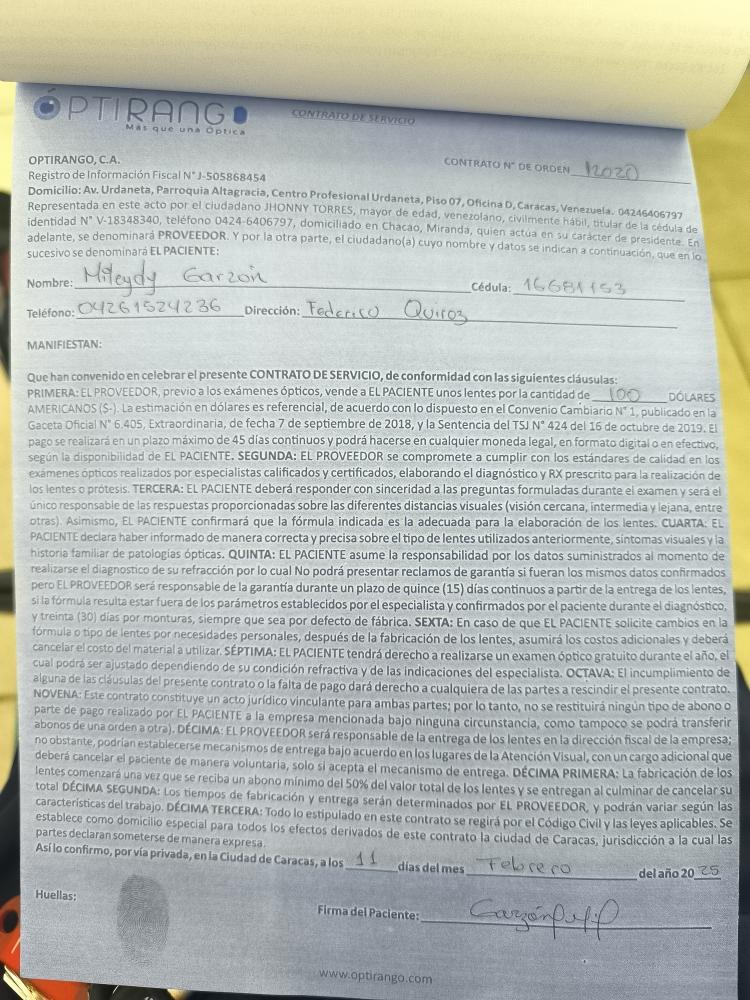 ÓPTIRANGO
Más que una Óptica
CONTRATO DE SERVICIO
OPTIRANGO, C.A.
CONTRATO N° DE ORDEN 12020
Registro de Información Fiscal N° J-505868454
Domicilio: Av. Urdaneta, Parroquia Altagracia, Centro Profesional Urdaneta, Piso 07, Oficina D, Caracas, Venezuela. 04246406797
Representada en este acto por el ciudadano JHONNY TORRES, mayor de edad, venezolano, civilmente hábil, titular de la cédula de
identidad N° V-18348340, teléfono 0424-6406797, domiciliado en Chacao, Miranda, quien actúa en su carácter de presidente. En
adelante, se denominará PROVEEDOR. Y por la otra parte, el ciudadano(a) cuyo nombre y datos se indican a continuación, que en lo
sucesivo se denominará EL PACIENTE:
Nombre: Mileydy Garzón Cédula: 16681153
Teléfono: 04261524236 Dirección: Federico Quiroz
MANIFIESTAN:
Que han convenido en celebrar el presente CONTRATO DE SERVICIO, de conformidad con las siguientes cláusulas:
PRIMERA: EL PROVEEDOR, previo a los exámenes ópticos, vende a EL PACIENTE unos lentes por la cantidad de 100 DÓLARES
AMERICANOS ($-). La estimación en dólares es referencial, de acuerdo con lo dispuesto en el Convenio Cambiario N° 1, publicado en la
Gaceta Oficial N° 6.405, Extraordinaria, de fecha 7 de septiembre de 2018, y la Sentencia del TSJ N° 424 del 16 de octubre de 2019. El
pago se realizará en un plazo máximo de 45 días continuos y podrá hacerse en cualquier moneda legal, en formato digital o en efectivo,
según la disponibilidad de EL PACIENTE. SEGUNDA: EL PROVEEDOR se compromete a cumplir con los estándares de calidad en los
exámenes ópticos realizados por especialistas calificados y certificados, elaborando el diagnóstico y RX prescrito para la realización de
los lentes o prótesis. TERCERA: EL PACIENTE deberá responder con sinceridad a las preguntas formuladas durante el examen y será el
único responsable de las respuestas proporcionadas sobre las diferentes distancias visuales (visión cercana, intermedia y lejana, entre
otras). Asimismo, EL PACIENTE confirmará que la fórmula indicada es la adecuada para la elaboración de los lentes. CUARTA: EL
PACIENTE declara haber informado de manera correcta y precisa sobre el tipo de lentes utilizados anteriormente, síntomas visuales y la
historia familiar de patologías ópticas. QUINTA: EL PACIENTE asume la responsabilidad por los datos suministrados al momento de
realizarse el diagnostico de su refracción por lo cual No podrá presentar reclamos de garantía si fueran los mismos datos confirmados
pero EL PROVEEDOR será responsable de la garantía durante un plazo de quince (15) días continuos a partir de la entrega de los lentes,
si la fórmula resulta estar fuera de los parámetros establecidos por el especialista y confirmados por el paciente durante el diagnóstico,
y treinta (30) días por monturas, siempre que sea por defecto de fábrica. SEXTA: En caso de que EL PACIENTE solicite cambios en la
fórmula o tipo de lentes por necesidades personales, después de la fabricación de los lentes, asumirá los costos adicionales y deberá
cancelar el costo del material a utilizar. SÉPTIMA: EL PACIENTE tendrá derecho a realizarse un examen óptico gratuito durante el año, el
cual podrá ser ajustado dependiendo de su condición refractiva y de las indicaciones del especialista. OCTAVA: El incumplimiento de
alguna de las cláusulas del presente contrato o la falta de pago dará derecho a cualquiera de las partes a rescindir el presente contrato.
NOVENA: Este contrato constituye un acto jurídico vinculante para ambas partes; por lo tanto, no se restituirá ningún tipo de abono o
parte de pago realizado por EL PACIENTE a la empresa mencionada bajo ninguna circunstancia, como tampoco se podrá transferir
abonos de una orden a otra). DÉCIMA: EL PROVEEDOR será responsable de la entrega de los lentes en la dirección fiscal de la empresa;
no obstante, podrían establecerse mecanismos de entrega bajo acuerdo en los lugares de la Atención Visual, con un cargo adicional que
deberá cancelar el paciente de manera voluntaria, solo si acepta el mecanismo de entrega. DÉCIMA PRIMERA: La fabricación de los
lentes comenzará una vez que se reciba un abono mínimo del 50% del valor total de los lentes y se entregan al culminar de cancelar su
total DÉCIMA SEGUNDA: Los tiempos de fabricación y entrega serán determinados por EL PROVEEDOR, y podrán variar según las
características del trabajo. DÉCIMA TERCERA: Todo lo estipulado en este contrato se regirá por el Código Civil y las leyes aplicables. Se
establece como domicilio especial para todos los efectos derivados de este contrato la ciudad de Caracas, jurisdicción a la cual las
partes declaran someterse de manera expresa.
Así lo confirmo, por vía privada, en la Ciudad de Caracas, a los 11 días del mes Febrero del año 2025
Huellas:
Firma del Paciente: Garzón
www.optirango.com